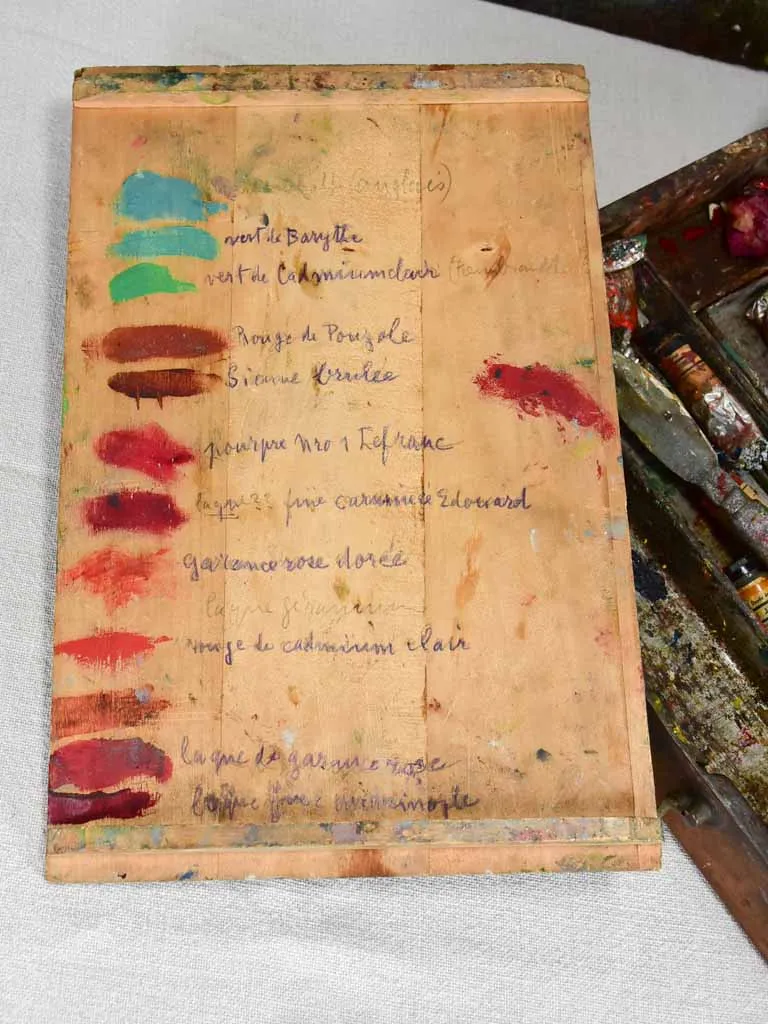 (anglais)
vert de Barythe
vert de Cadmium clair
Rouge de Pouzole
Sienne brulée
pourpre nro 1 Lefranc
laque fine carminée Edouard
garance rose dorée
laque géranium
rouge de cadmium clair
laque de garance rose
laque fine